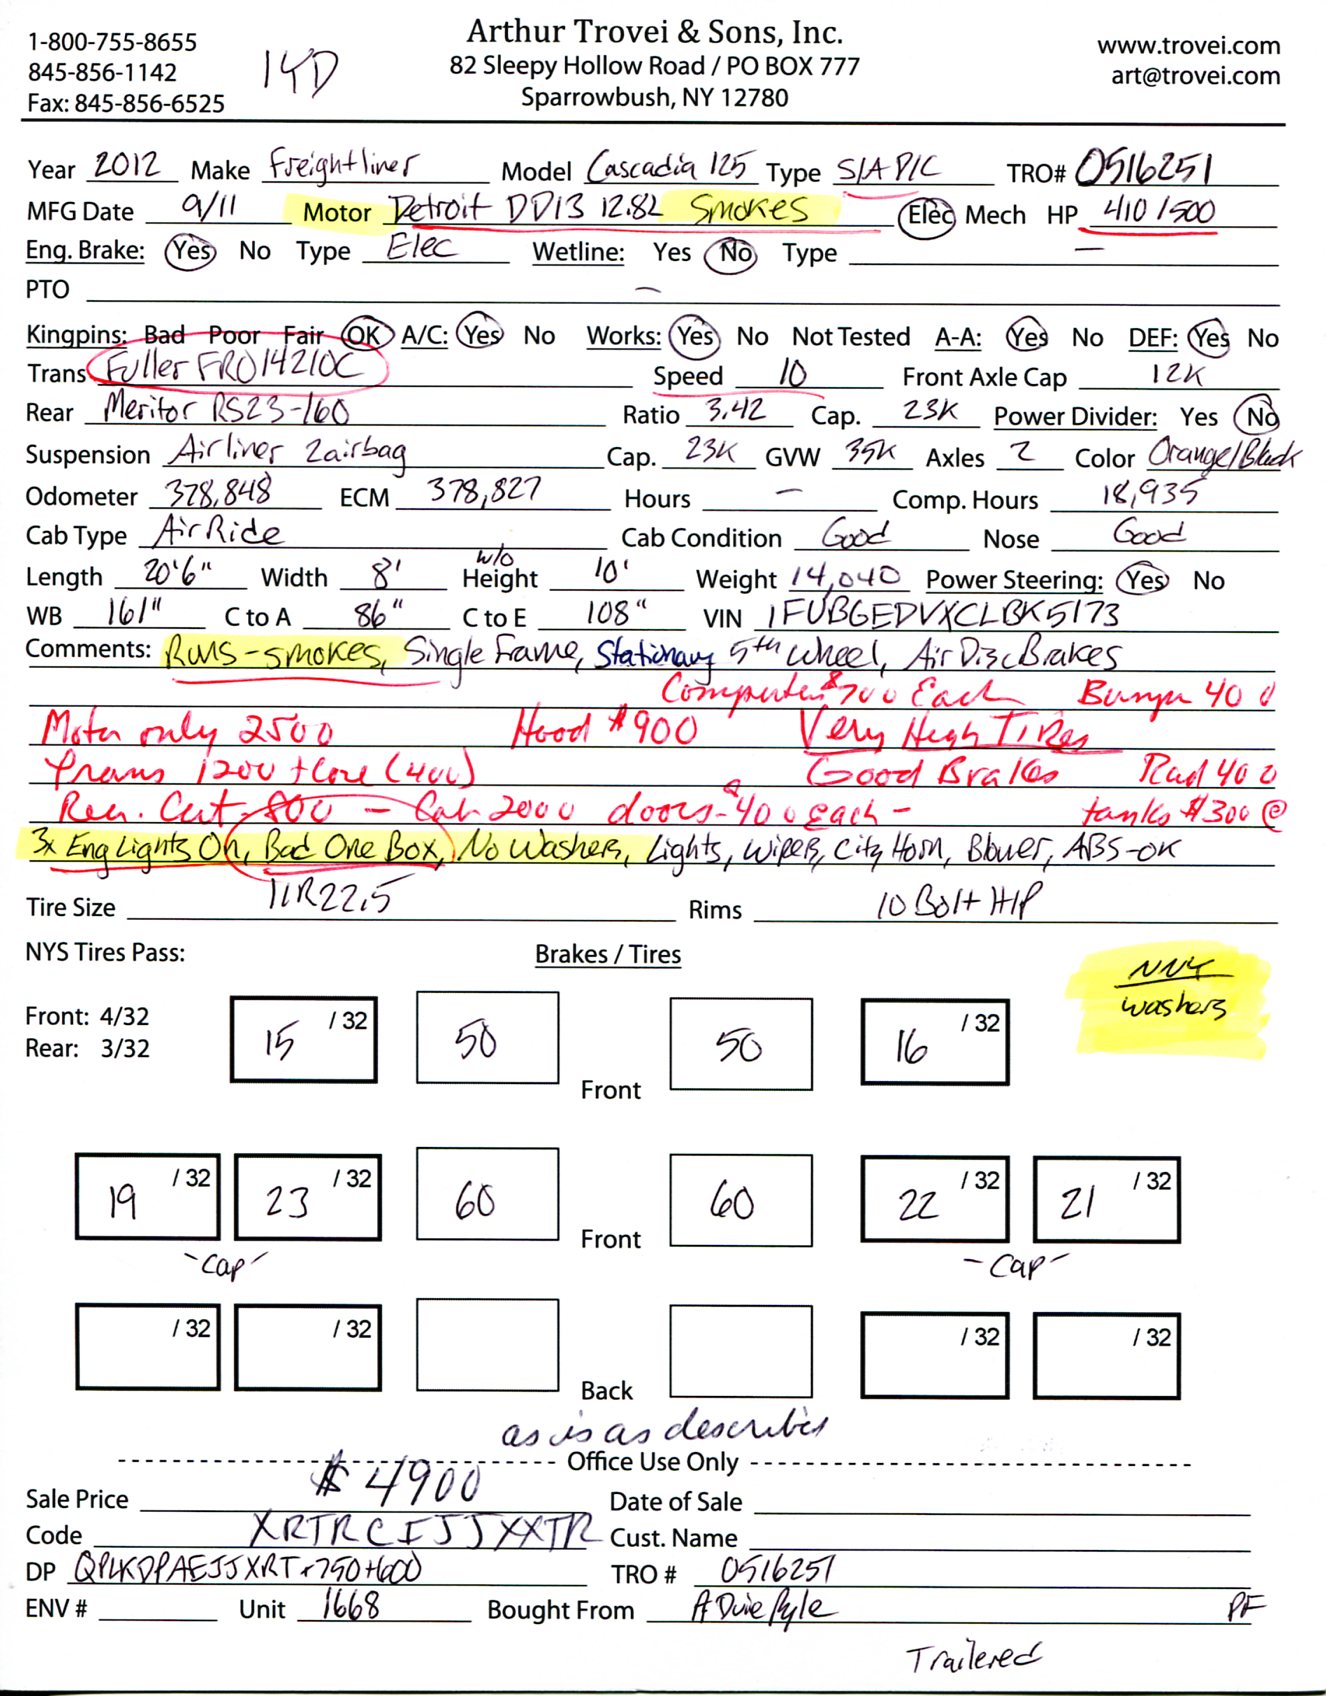 Arthur Trovei & Sons, Inc.
82 Sleepy Hollow Road / PO BOX 777
Sparrowbush, NY 12780
1-800-755-8655
845-856-1142
Fax: 845-856-6525
www.trovei.com
art@trovei.com
Year 2012 Make Freightliner Model Cascadia 125 Type S/A D/C TRO# 0516251
MFG Date 9/11 Motor Detroit DD13 12.8L Smokes Elec Mech HP 410/500
Eng. Brake: Yes No Type Elec Wetline: Yes No Type —
PTO —
Kingpins: Bad Poor Fair OK A/C: Yes No Works: Yes No Not Tested A-A: Yes No DEF: Yes No
Trans Fuller FRO14210C Speed 10 Front Axle Cap 12K
Rear Meritor RS23-160 Ratio 3.42 Cap. 23K Power Divider: Yes No
Suspension Airliner 2airbag Cap. 23K GVW 35K Axles 2 Color Orange/Black
Odometer 378,848 ECM 378,827 Hours — Comp. Hours 18,935
Cab Type Air Ride Cab Condition Good Nose Good
Length 20'6" Width 8' w/o Height 10' Weight 14,040 Power Steering: Yes No
WB 161" C to A 86" C to E 108" VIN 1FUBGEDVXCLBK5173
Comments: Runs-smokes, Single Frame, Stationary 5th Wheel, Air Disc Brakes
Computer $700 Each Bumper 400
Motor only 2500 Hood $900 Very High Tires
Trans 1200 + Core (400) Good Brakes Rad 400
Rear. Cut-800 — Cab 2000 doors-$400 each - tanks $300 @
3x Eng Lights On, Bad One Box, No Washers, Lights, Wipers, City Horn, Blower, ABS-OK
Tire Size 11R22.5 Rims 10 Bolt H/P
NYS Tires Pass: Brakes / Tires
NNY
washers
Front: 4/32
Rear: 3/32
15 /32 50 Front 50 16 /32
19 /32 23 /32 60 Front 60 22 /32 21 /32
-Cap- -Cap-
/32 /32 Back /32 /32
as is as describes
Office Use Only
Sale Price $4900 Date of Sale
Code XRTRCFJJXXTR Cust. Name
DP QPLKDPAEJJXRT+750+600 TRO # 0516251
ENV # Unit 1668 Bought From A Duie Pyle PF
Trailered